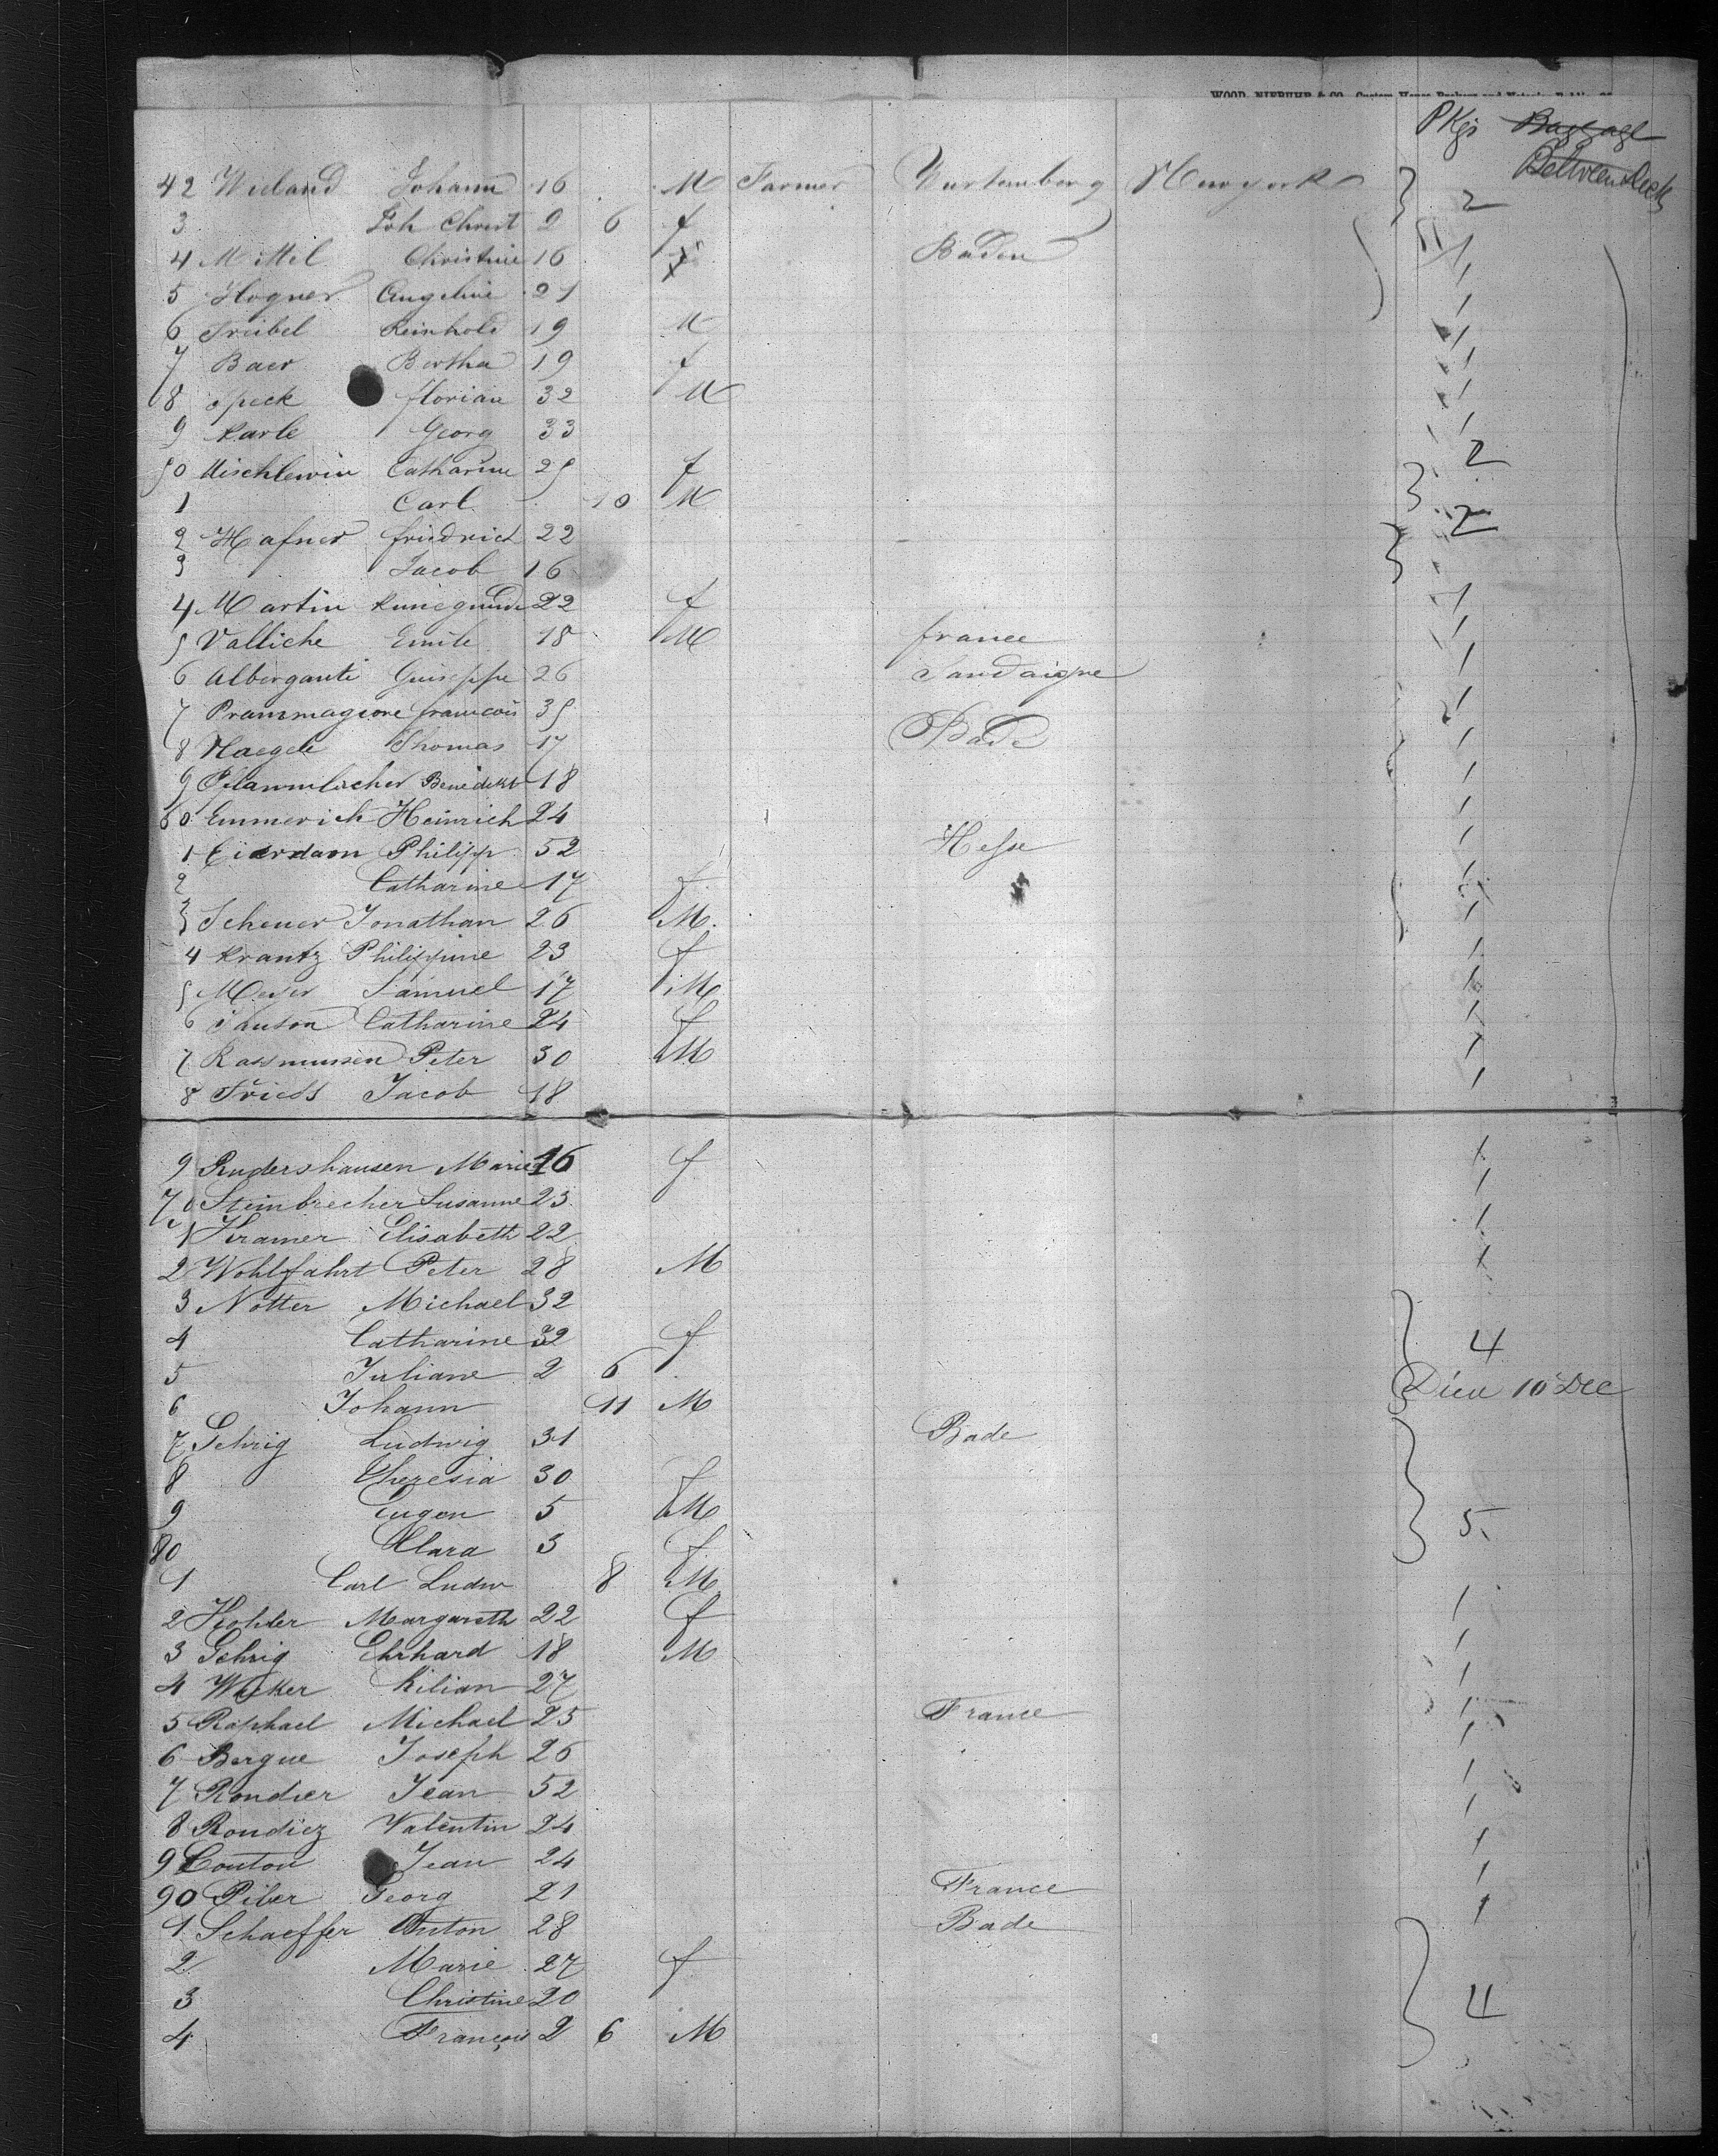 WOOD, NIEBUHR & CO. Custom House Brokers and Notaries Public
PKgs Baggage
Between Deck
42 Wieland Johann 16 M Farmer Wurtemberg Newyork 2
3 Joh Christ 2 6 f
4 Mittel Christine 16 f Baden 1
5 Hogner Angeline 21 1
6 Treibel Reinhold 19 M 1
7 Baer Bertha 19 f 1
8 Speck florian 32 M 1
9 Karle Georg 33 1
50 Catharine 25 f 2
1 Carl 10 M
2 Hafner friedrich 22 2
3 Jacob 16
4 Martin Kunegunde 22 f 1
5 Valliche Emile 18 M france 1
6 Alberganti Guiseppe 26 Sardaigne 1
7 francois 35 1
8 Naegele Thomas 17 Bade 1
9 Benedikt 18 1
60 Emmerich Heinrich 24 1
1 Eierdam Philipp 52 Hesse 1
2 Catharine 17 f 1
3 Scheuer Jonathan 26 M 1
4 Krantz Philippine 23 f 1
5 Meyer Samuel 17 M 1
6 Janson Catharine 24 f 1
7 Rassmussen Peter 30 M 1
8 Friess Jacob 18 1
9 Rudershausen Marie 16 f 1
70 Steinbrecher Susanne 23 1
1 Kramer Elisabeth 22 1
2 Wohlfahrt Peter 28 M 1
3 Notter Michael 32
4 Catharine 32 f 4
5 Juliane 2 6
6 Johann 11 M Died 10 Dec
7 Gehrig Ludwig 31 Bade
8 Theresia 30 f
9 Eugen 5 M 5
80 Klara 3 f
1 Carl Ludw 8 M
2 Kohler Margareth 22 f 1
3 Gehrig Ehrhard 18 M 1
4 Wacker Kilian 27 1
5 Raphael Michael 25 France 1
6 Bergue Joseph 26 1
7 Rondier Jean 52 1
8 Rondiez Valentin 24 1
9 Couton Jean 24 1
90 Piber Georg 21 France 1
1 Schaeffer Anton 28 Bade 1
2 Marie 27 f
3 Christine 20 4
4 François 2 6 M